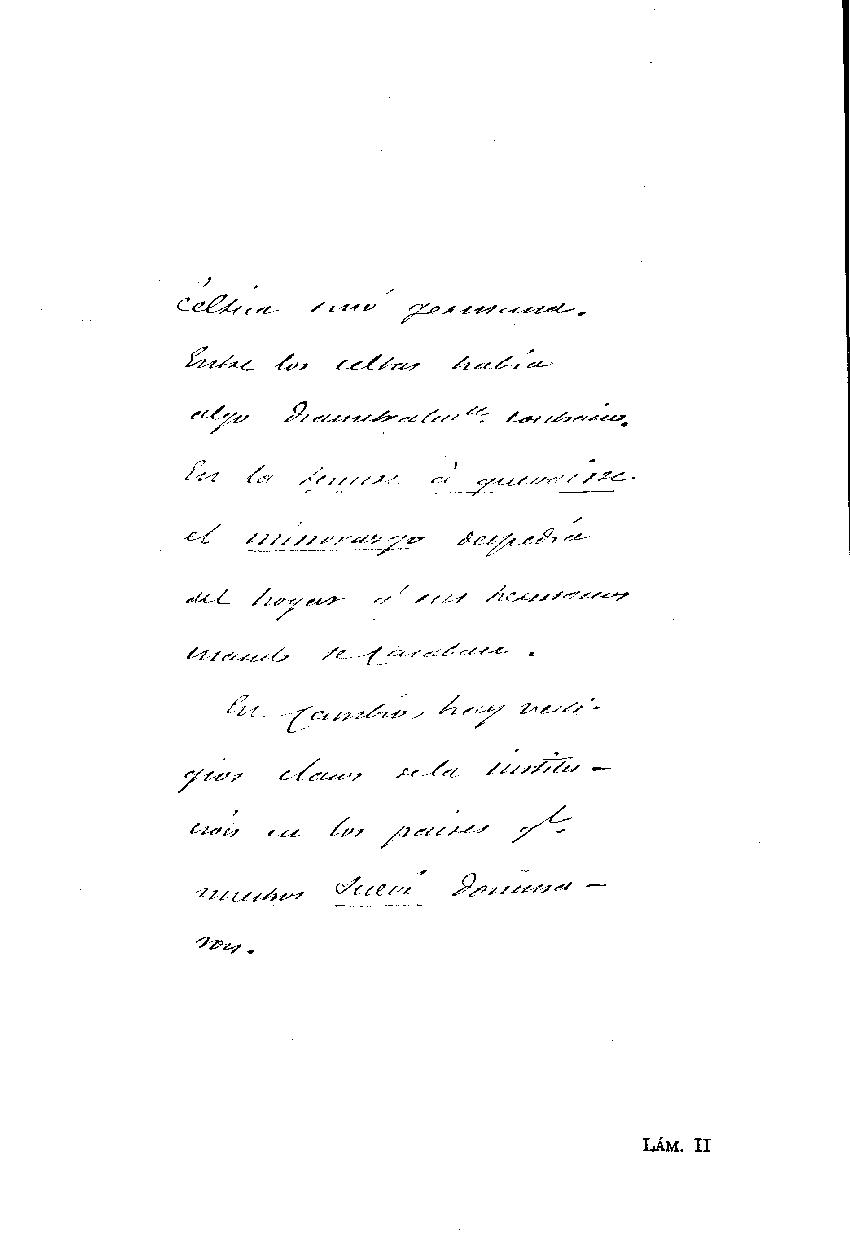 céltica sinó germana.
Entre los celtas había
algo diametralm.te contrario.
En la tenure à quevaise
el minorazgo despedía
del hogar á sus hermanos
cuando se casaban.
En cambio, hay vesti-
gios claros de la institu-
ción en los paises q.e
nuestros Suevi domina-
ron.
LÁM. II